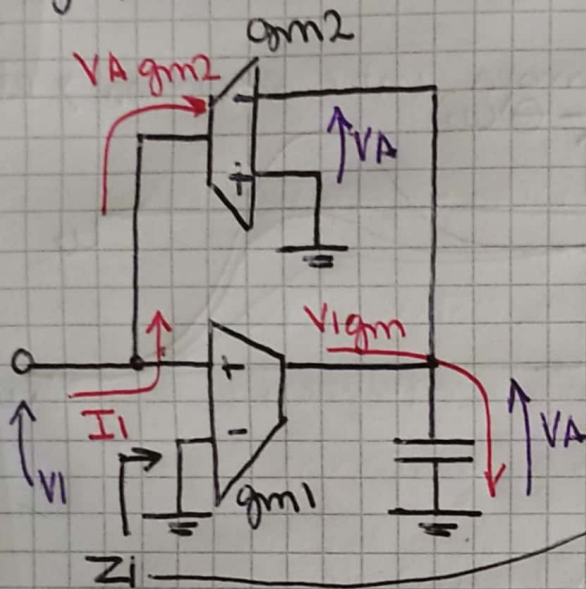 gm2
VA gm2
-
VA
+
V1gm
+
I1
-
VA
V1
gm1
Zi